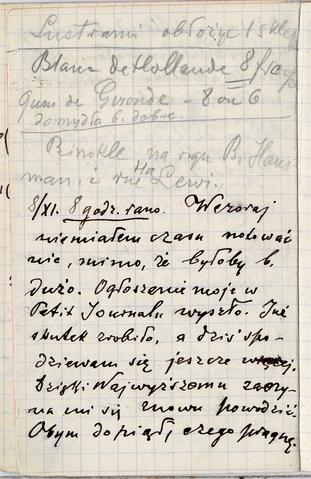 Lustrami obłożyć 1 sklep
Blanc de Hollande 8 fr.
Gum de Gironde - 8 ou 6
do mydła b. dobre.
Binokle na rogu B. Haus-
man. i rue La
8/XI. 8 godz. rano. Wczoraj
nie miałem czasu notować
nic, mimo, że byłoby b.
dużo. Ogłoszenie moje w
Petit Journalu wyszło. Już
skutek zrobiło, a dziś spo-
dziewam się jeszcze więcej.
Dzięki Najwyższemu zaczy-
na mi się znowu powodzić
Obym dopiął, czego pragnę.